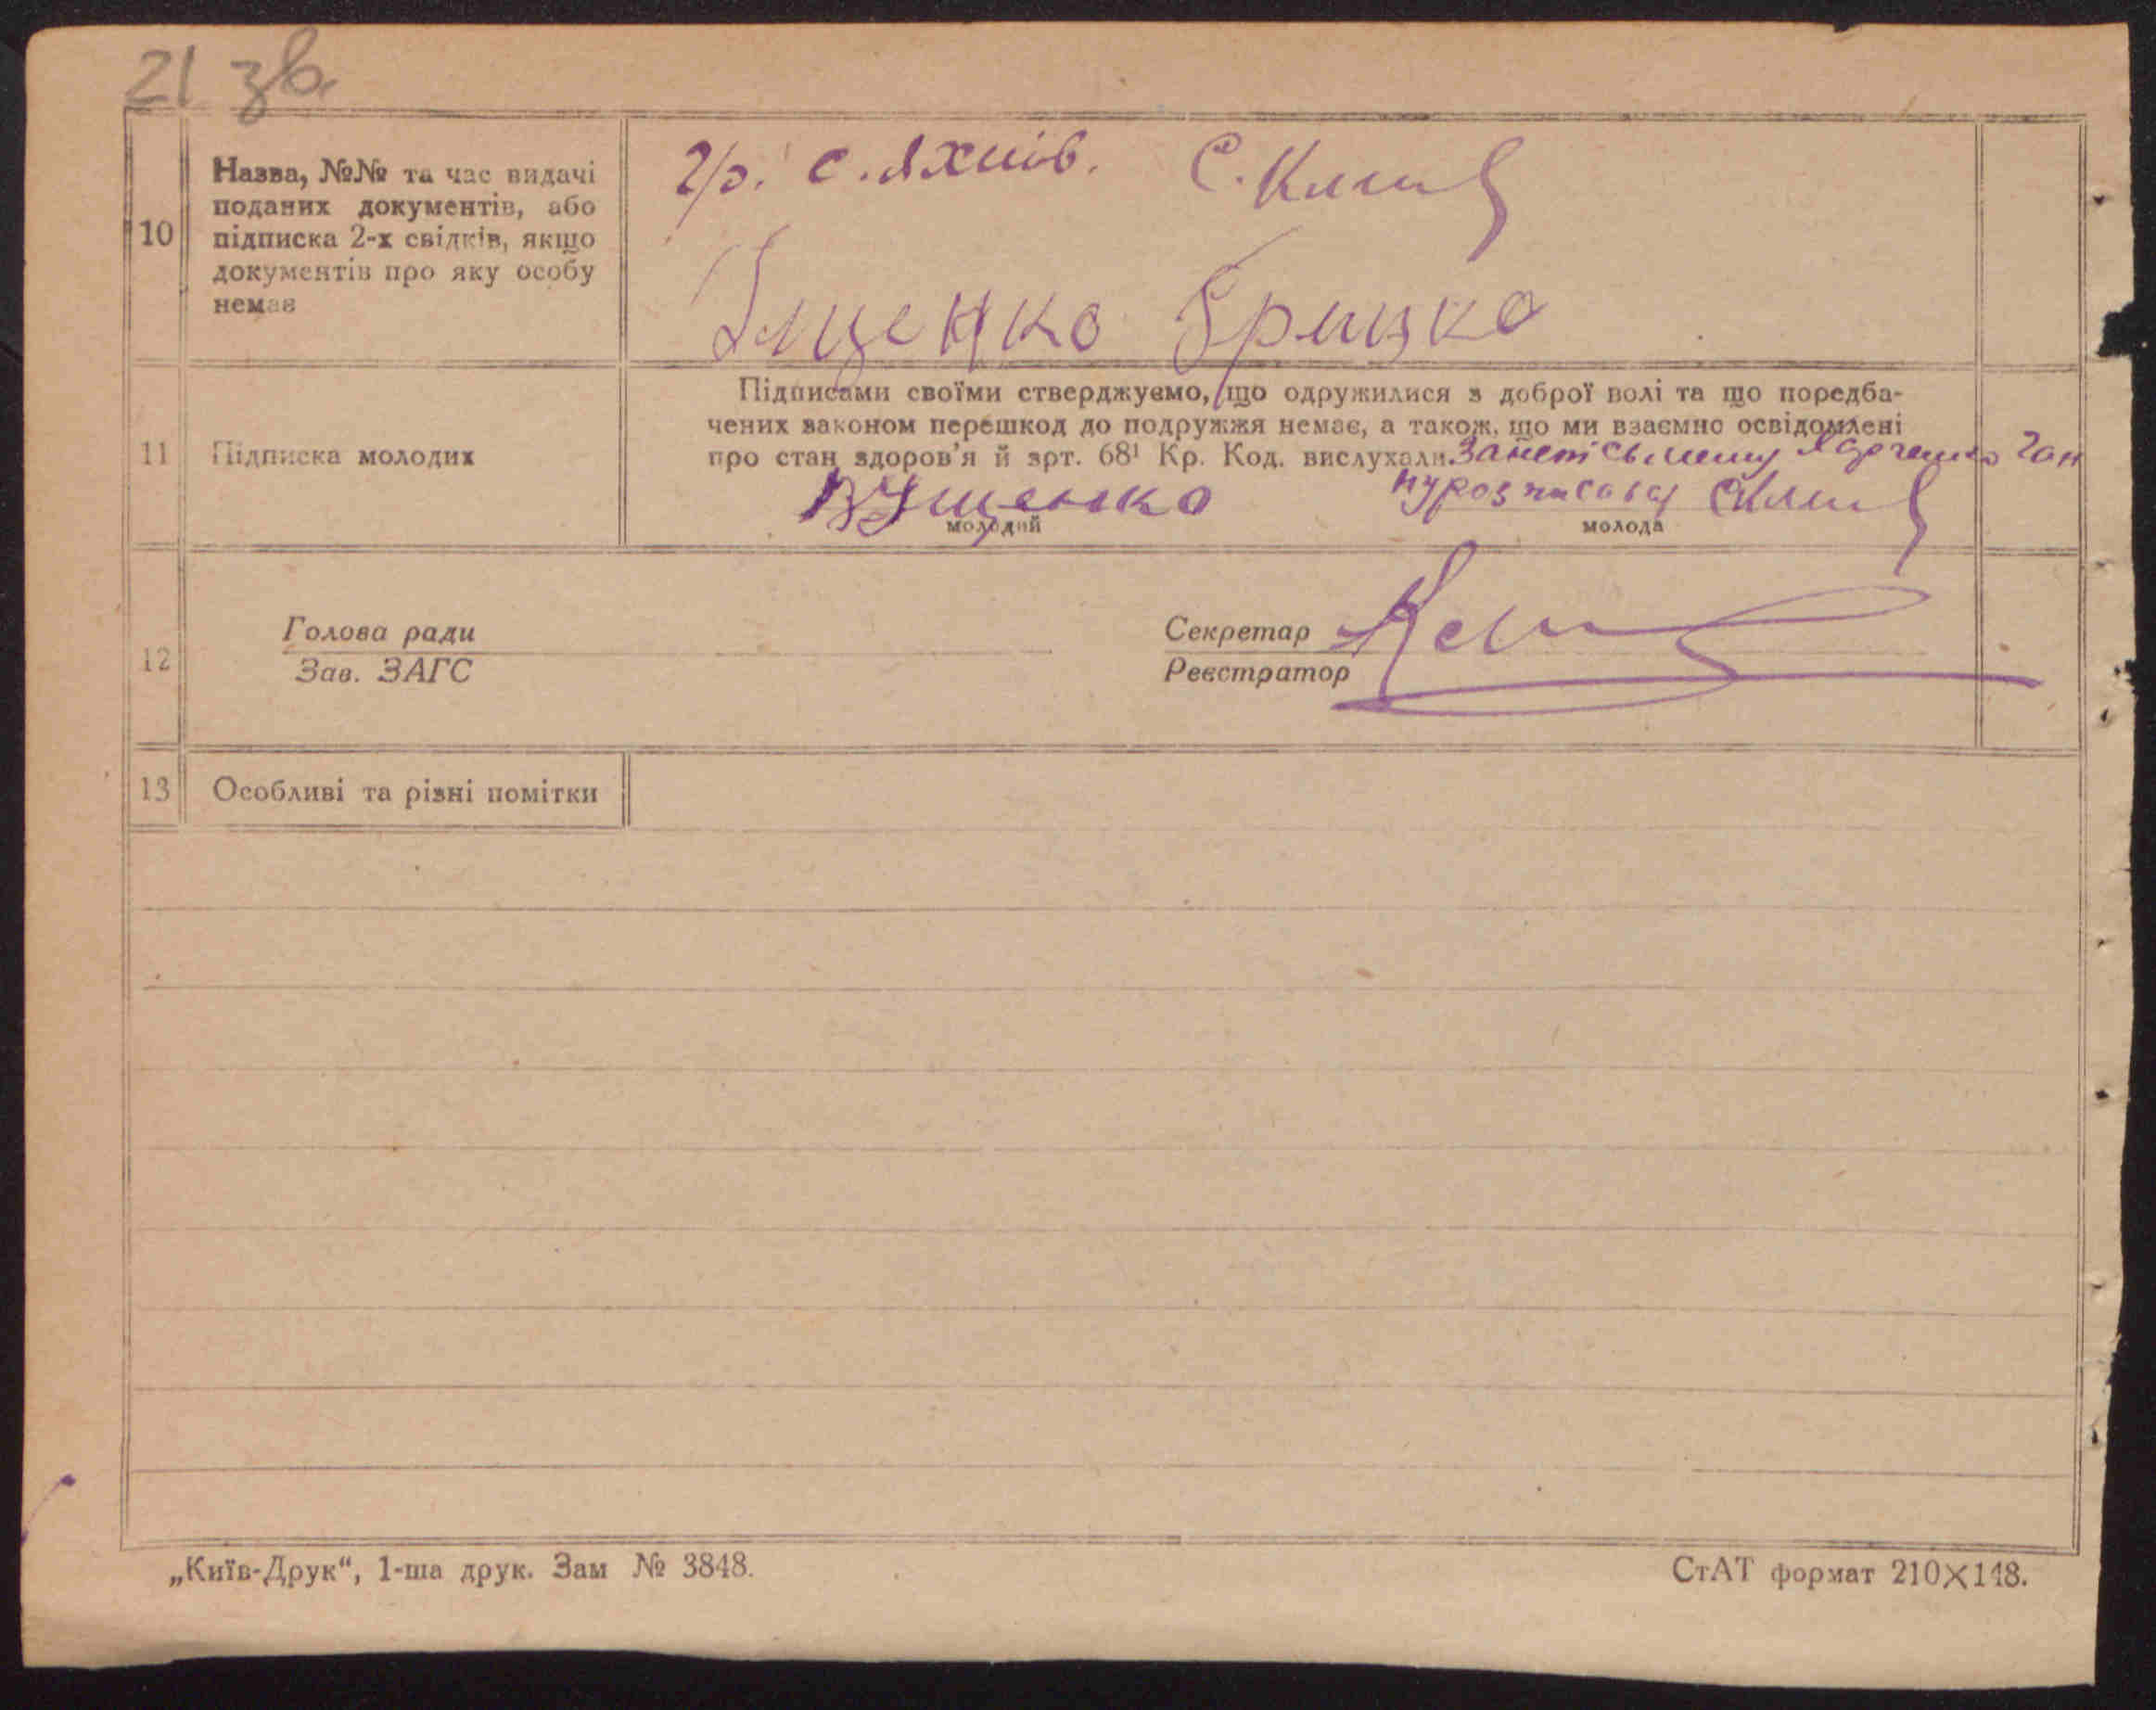 21 зв.
10
Назва, №№ та час видачі
поданих документів, або
підписка 2-х свідків, якщо
документів про яку особу
немає
гр. с. Яхнів. С. Клим
Іщенко Грицко
11
Підписка молодих
Підписами своїми стверджуємо, що одружилися з доброї волі та що поредба-
чених законом перешкод до подружжя немає, а також, що ми взаємно освідомлені
про стан здоров'я й арт. 68¹ Кр. Код. вислухали За неписьменну
Іщенко
молодий
розписався СКлим
молода
12
Голова ради
Зав. ЗАГС
Секретар
Реєстратор
13
Особливі та різні помітки
„Київ-Друк“, 1-ша друк. Зам № 3848.
СтАТ формат 210×148.